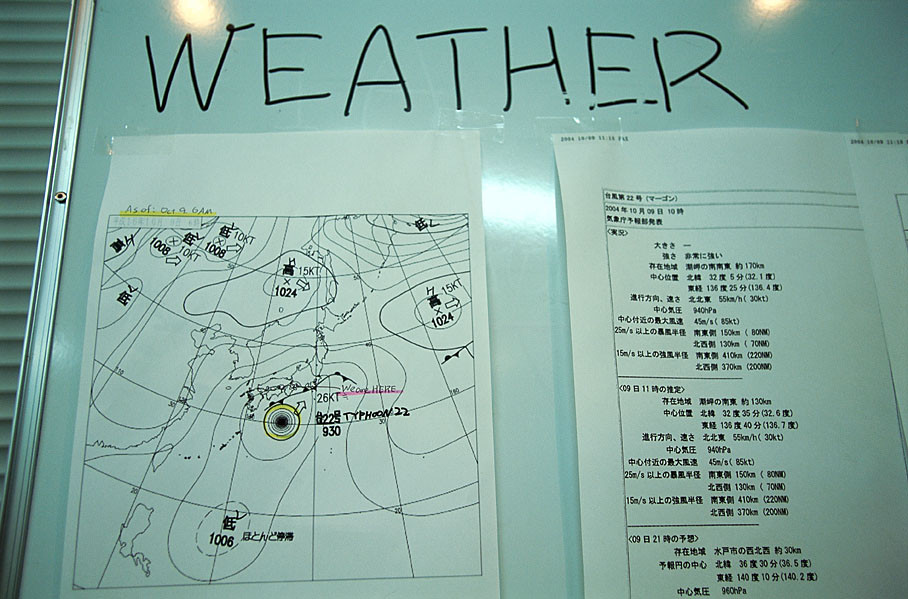 WEATHER
As of: Oct 9 6AM
低
低
低
1008
1008
10KT
10KT
低
高
15KT
1024
高
15KT
1024
We are HERE
26KT
台22号 TYPHOON 22
930
低
1006
ほとんど停滞
2004 10/09 11:15 FAX
台風第22号 (マーゴン)
2004年10月09日10時
気象庁予報部発表
<実況>
大きさ ー
強さ 非常に強い
存在地域 潮岬の南南東 約170km
中心位置 北緯 32度 5分(32.1度)
東経 136度25分(136.4度)
進行方向、速さ 北北東 55km/h( 30kt)
中心気圧 940hPa
中心付近の最大風速 45m/s( 85kt)
25m/s以上の暴風半径 南東側 150km( 80NM)
北西側 130km( 70NM)
15m/s以上の強風半径 南東側 410km(220NM)
北西側 370km(200NM)
<09日11時の推定>
存在地域 潮岬の南東 約130km
中心位置 北緯 32度35分(32.6度)
東経 136度40分(136.7度)
進行方向、速さ 北北東 55km/h( 30kt)
中心気圧 940hPa
中心付近の最大風速 45m/s( 85kt)
25m/s以上の暴風半径 南東側 150km( 80NM)
北西側 130km( 70NM)
15m/s以上の強風半径 南東側 410km(220NM)
北西側 370km(200NM)
<09日21時の予想>
存在地域 水戸市の西北西 約30km
予報円の中心 北緯 36度30分(36.5度)
東経 140度10分(140.2度)
中心気圧 960hPa